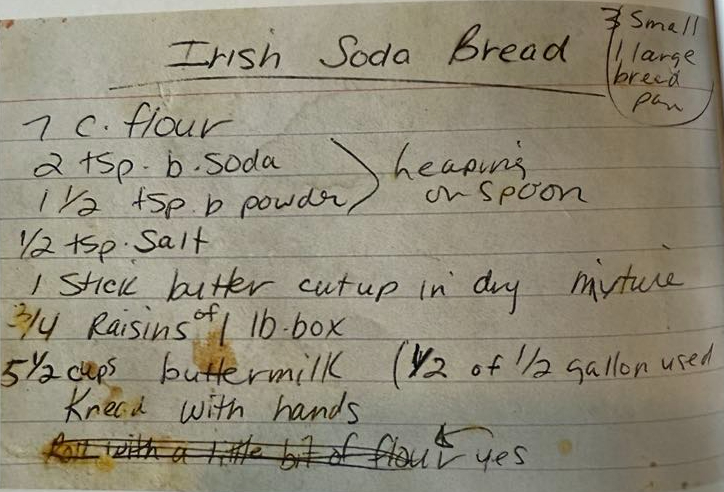 Irish Soda Bread
3 Small
1 large
bread
pan
7 c. flour
2 tsp. b. soda
1 1/2 tsp. b powder
heaping
on spoon
1/2 tsp. Salt
1 Stick butter cut up in dry mixture
3/4 Raisins of 1 lb. box
5 1/2 cups buttermilk (1/2 of 1/2 gallon used
Knead with hands
Roll with a little bit of flour yes